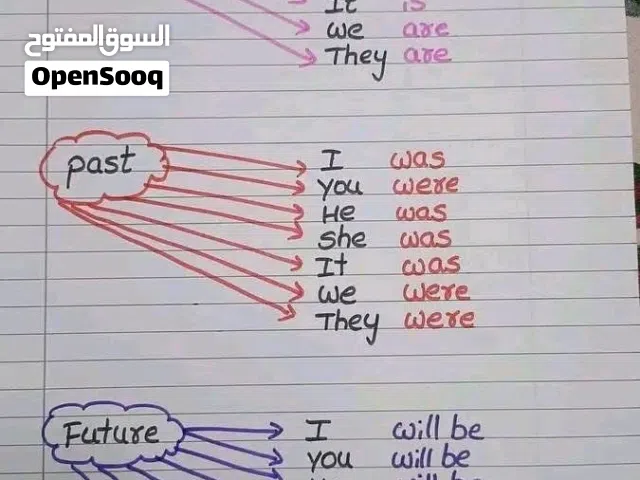 It is
we are
They are
السوق المفتوح
OpenSooq
past
I was
you were
He was
she was
It was
we were
They were
Future
I will be
you will be
will be